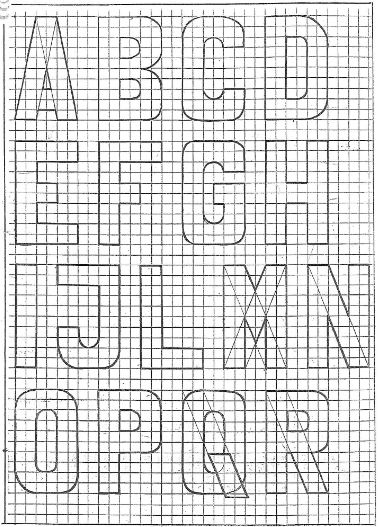 A B C D
E F G H
I J L M N
O P Q R